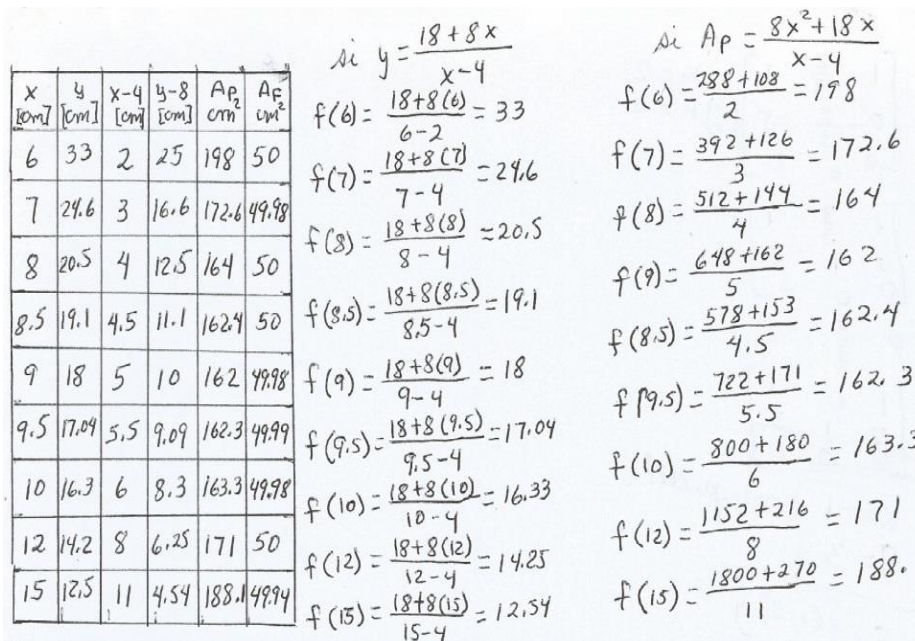 x y x-4 y-8 Ap Af
[cm] [cm] [cm] [cm] cm² cm²
6 33 2 25 198 50
7 24.6 3 16.6 172.6 49.98
8 20.5 4 12.5 164 50
8.5 19.1 4.5 11.1 162.4 50
9 18 5 10 162 49.98
9.5 17.04 5.5 9.09 162.3 49.99
10 16.3 6 8.3 163.3 49.98
12 14.2 8 6.25 171 50
15 12.5 11 4.54 188.1 49.94
si y = (18+8x)/(x-4)
f(6) = (18+8(6))/(6-2) = 33
f(7) = (18+8(7))/(7-4) = 24.6
f(8) = (18+8(8))/(8-4) = 20.5
f(8.5) = (18+8(8.5))/(8.5-4) = 19.1
f(9) = (18+8(9))/(9-4) = 18
f(9.5) = (18+8(9.5))/(9.5-4) = 17.04
f(10) = (18+8(10))/(10-4) = 16.33
f(12) = (18+8(12))/(12-4) = 14.25
f(15) = (18+8(15))/(15-4) = 12.54
si Ap = (8x²+18x)/(x-4)
f(6) = (288+108)/2 = 198
f(7) = (392+126)/3 = 172.6
f(8) = (512+144)/4 = 164
f(9) = (648+162)/5 = 162
f(8.5) = (578+153)/4.5 = 162.4
f(9.5) = (722+171)/5.5 = 162.3
f(10) = (800+180)/6 = 163.3
f(12) = (1152+216)/8 = 171
f(15) = (1800+270)/11 = 188.